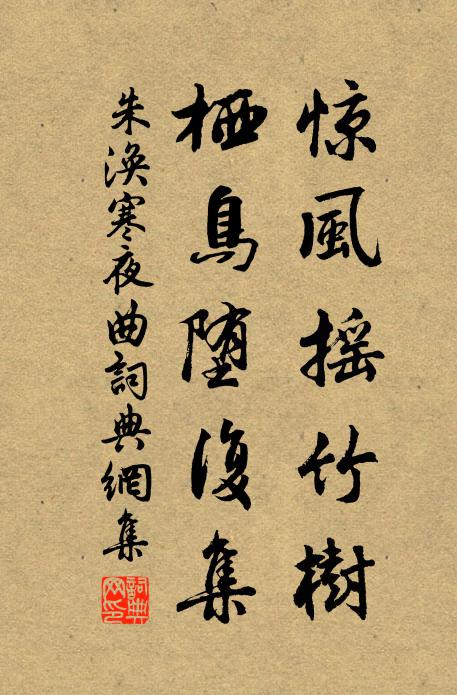 惊風摇竹樹
栖鳥堕復集
朱渙寒夜曲詞典網集
詞典网印